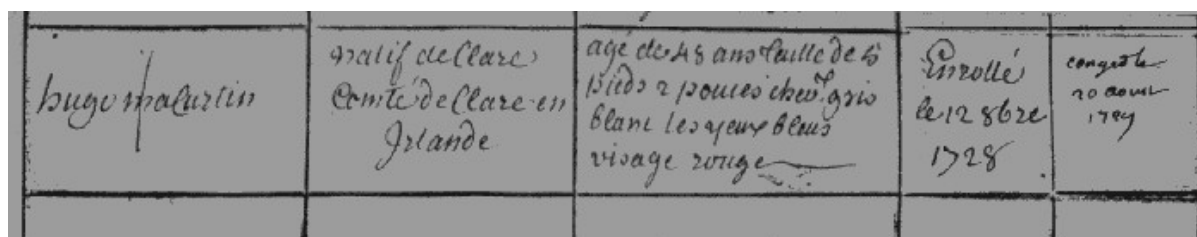 hugo macurtin
natif de Clare
Comté de Clare en
Irlande
agé de 48 ans taille de 5
pieds 2 pouces chev.x gris
blanc les yeux bleus
visage rouge
Enrollé
le 12 8bre
1728
congé le
20 aout